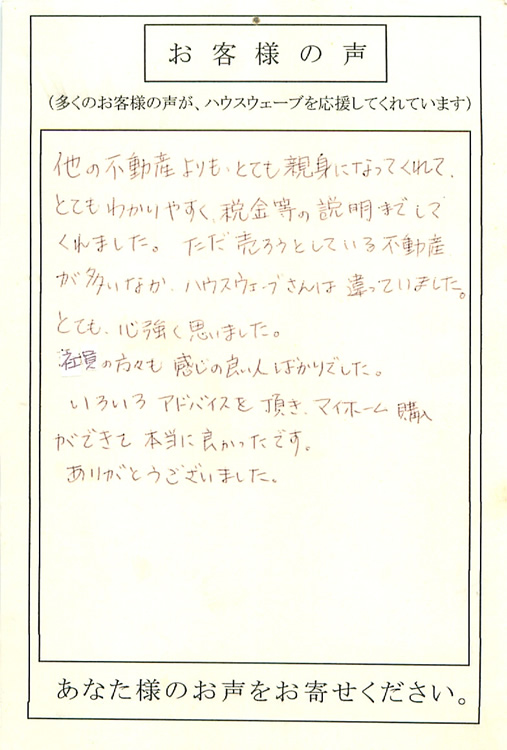 お客様の声
（多くのお客様の声が、ハウスウェーブを応援してくれています）
他の不動産よりも、とても親身になってくれて、
とてもわかりやすく、税金等の説明までして
くれました。ただ売ろうとしている不動産
が多いなか、ハウスウェーブさんは違っていました。
とても、心強く思いました。
社員の方々も感じの良い人ばかりでした。
いろいろアドバイスを頂き、マイホーム購入
ができて本当に良かったです。
ありがとうございました。
あなた様のお声をお寄せください。